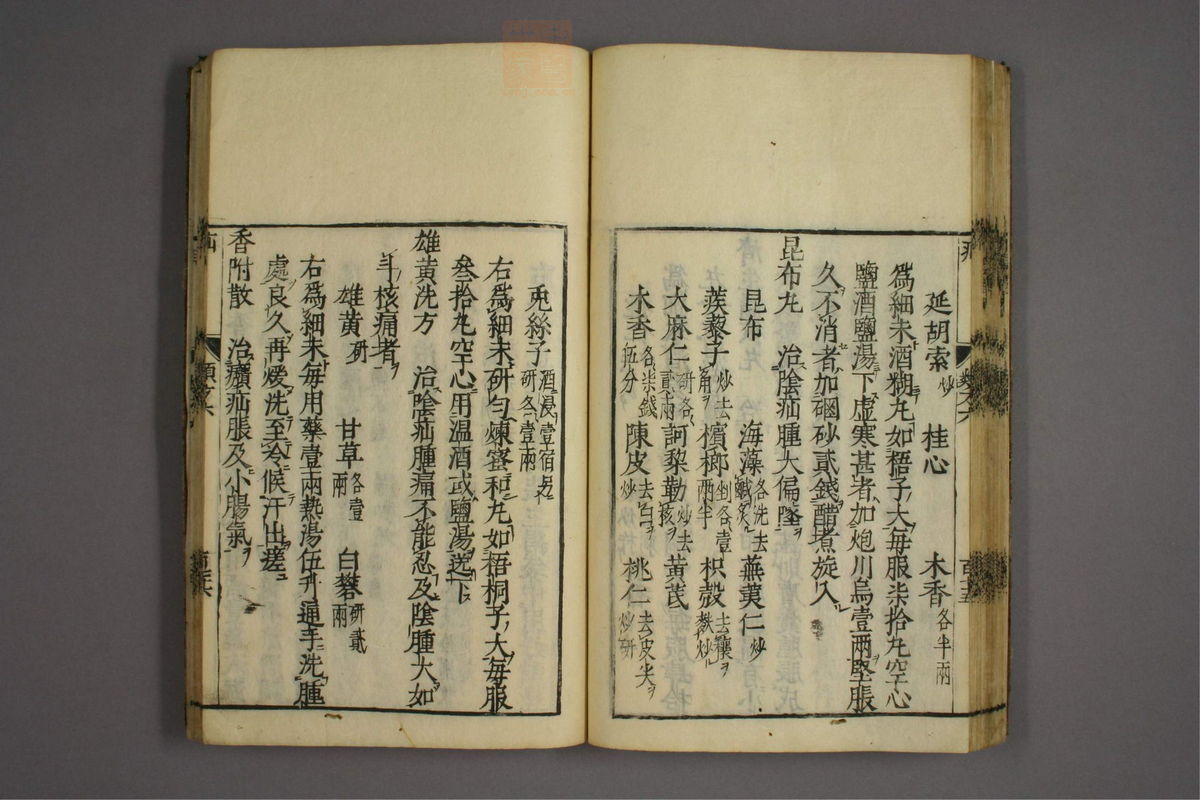 延胡索炒 桂心 木香各半兩
爲細末酒糊丸如梧子大毎服柒拾丸空心
鹽酒鹽湯下虚寒甚者加炮川烏壹兩堅脹
久不消者加硇砂貳錢醋煮旋入
昆布丸 治陰疝腫大偏墜
昆布 海藻各洗去鹹炙 蕪荑仁炒
蒺藜子炒去角 檳榔剉各壹兩半 枳殼去穰麩炒
大麻仁研各貳兩 訶黎勒炒去核 黄芪
木香各柒錢伍分 陳皮去白炒 桃仁去皮尖炒研
兎絲子酒浸壹宿另研各壹兩
右爲細末研匀煉蜜和丸如梧桐子大毎服
叁拾丸空心用温酒或鹽湯送下
雄黄洗方 治陰疝腫痛不能忍及陰腫大如
斗核痛者
雄黄研 甘草各壹兩 白礬研貳兩
右爲細末毎用藥壹兩熱湯伍升通手洗腫
處良久再煖洗至冷候汗出瘥
香附散 治㿗疝脹及小腸氣
疝 類之六